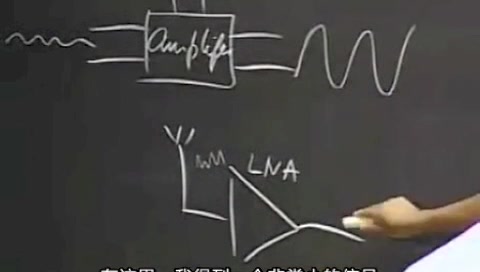 Amplifer
LNA
在这里 我得到一个非常小的信号